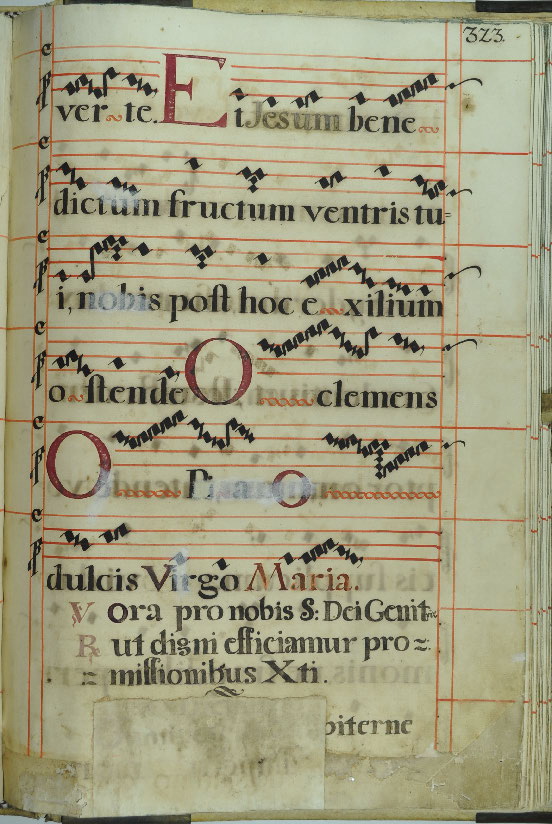 323.
ver~te. Et Jesum bene~
dictum fructum ventris tu=
i, nobis post hoc e~xilium
o~stende O~clemens
O~Pi~a O~
dulcis Virgo Maria.
V Ora pro nobis S: Dei Genit
R ut digni efficiamur pro=
= missionibus Xti.
piterne